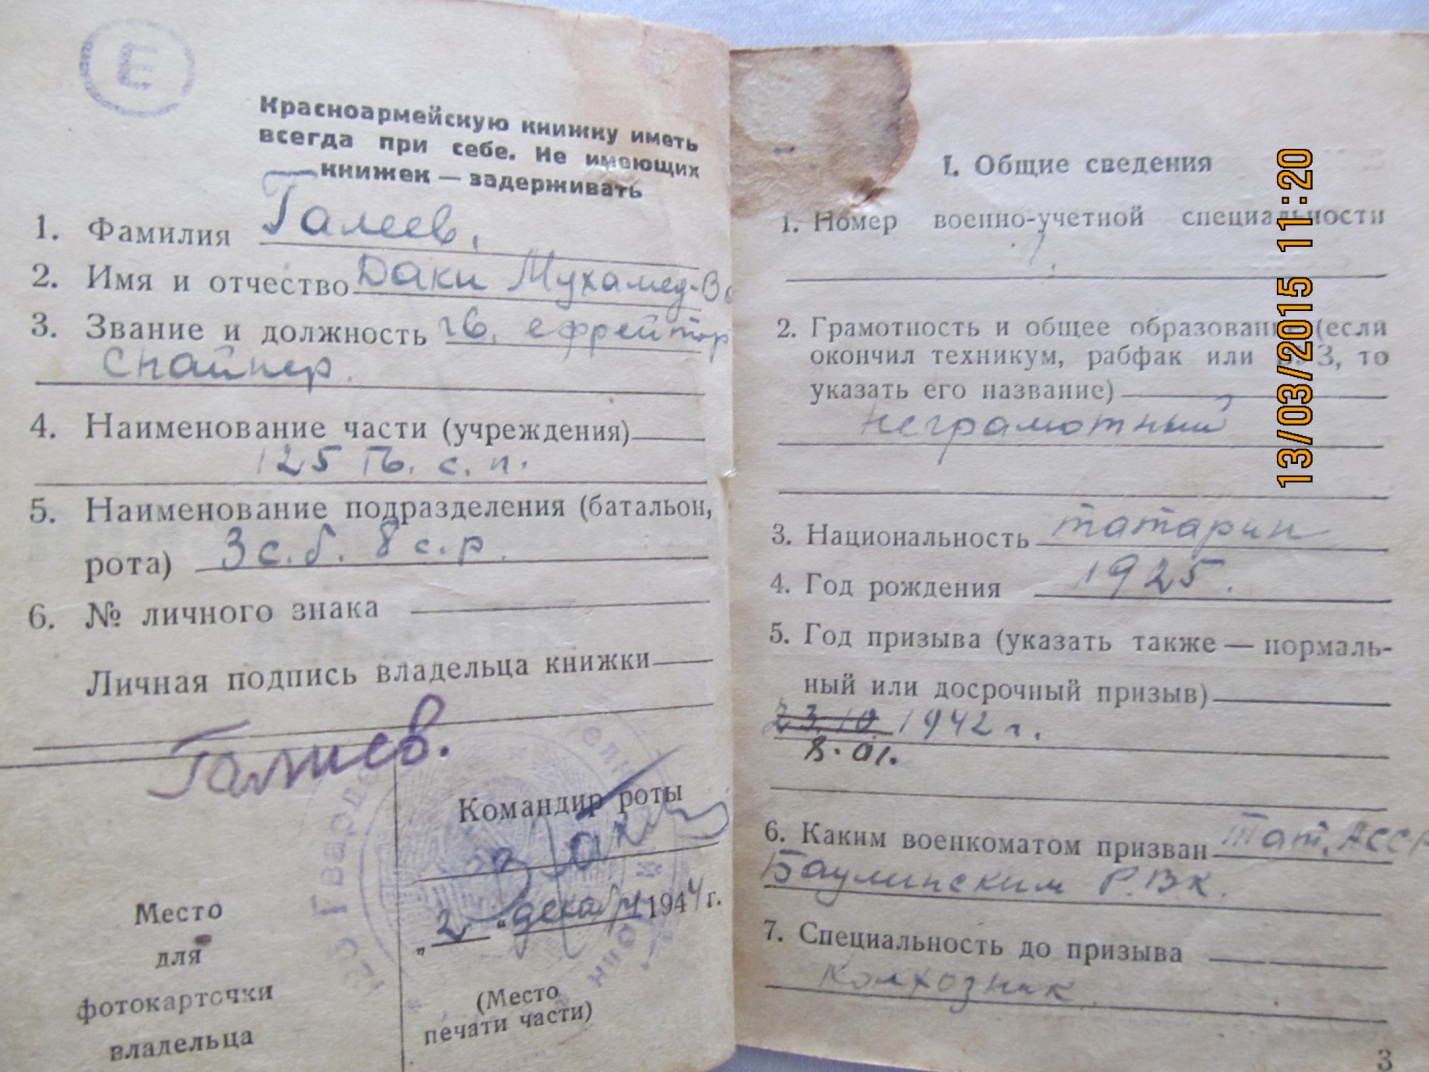 Е
Красноармейскую книжку иметь
всегда при себе. Не имеющих
книжек — задерживать
1. Фамилия Галеев.
2. Имя и отчество Даки Мухамед-
3. Звание и должность гв. ефрейтор
снайпер.
4. Наименование части (учреждения)
125 Гв. с. п.
5. Наименование подразделения (батальон,
рота) 3 с. б. 8 с. р.
6. № личного знака
Личная подпись владельца книжки
Галиев.
Командир роты
"2" декабря 1944 г.
Место
для
фотокарточки
владельца
(Место
печати части)
I. Общие сведения
1. Номер военно-учетной специальности
2. Грамотность и общее образование (если
окончил техникум, рабфак или ВУЗ, то
указать его название)
неграмотный
3. Национальность татарин
4. Год рождения 1925.
5. Год призыва (указать также — нормаль-
ный или досрочный призыв)
23.10. 1942 г.
8.01.
6. Каким военкоматом призван Тат. АССР
Баулинским Р.В.К.
7. Специальность до призыва
Колхозник.
3
13/03/2015 11:20